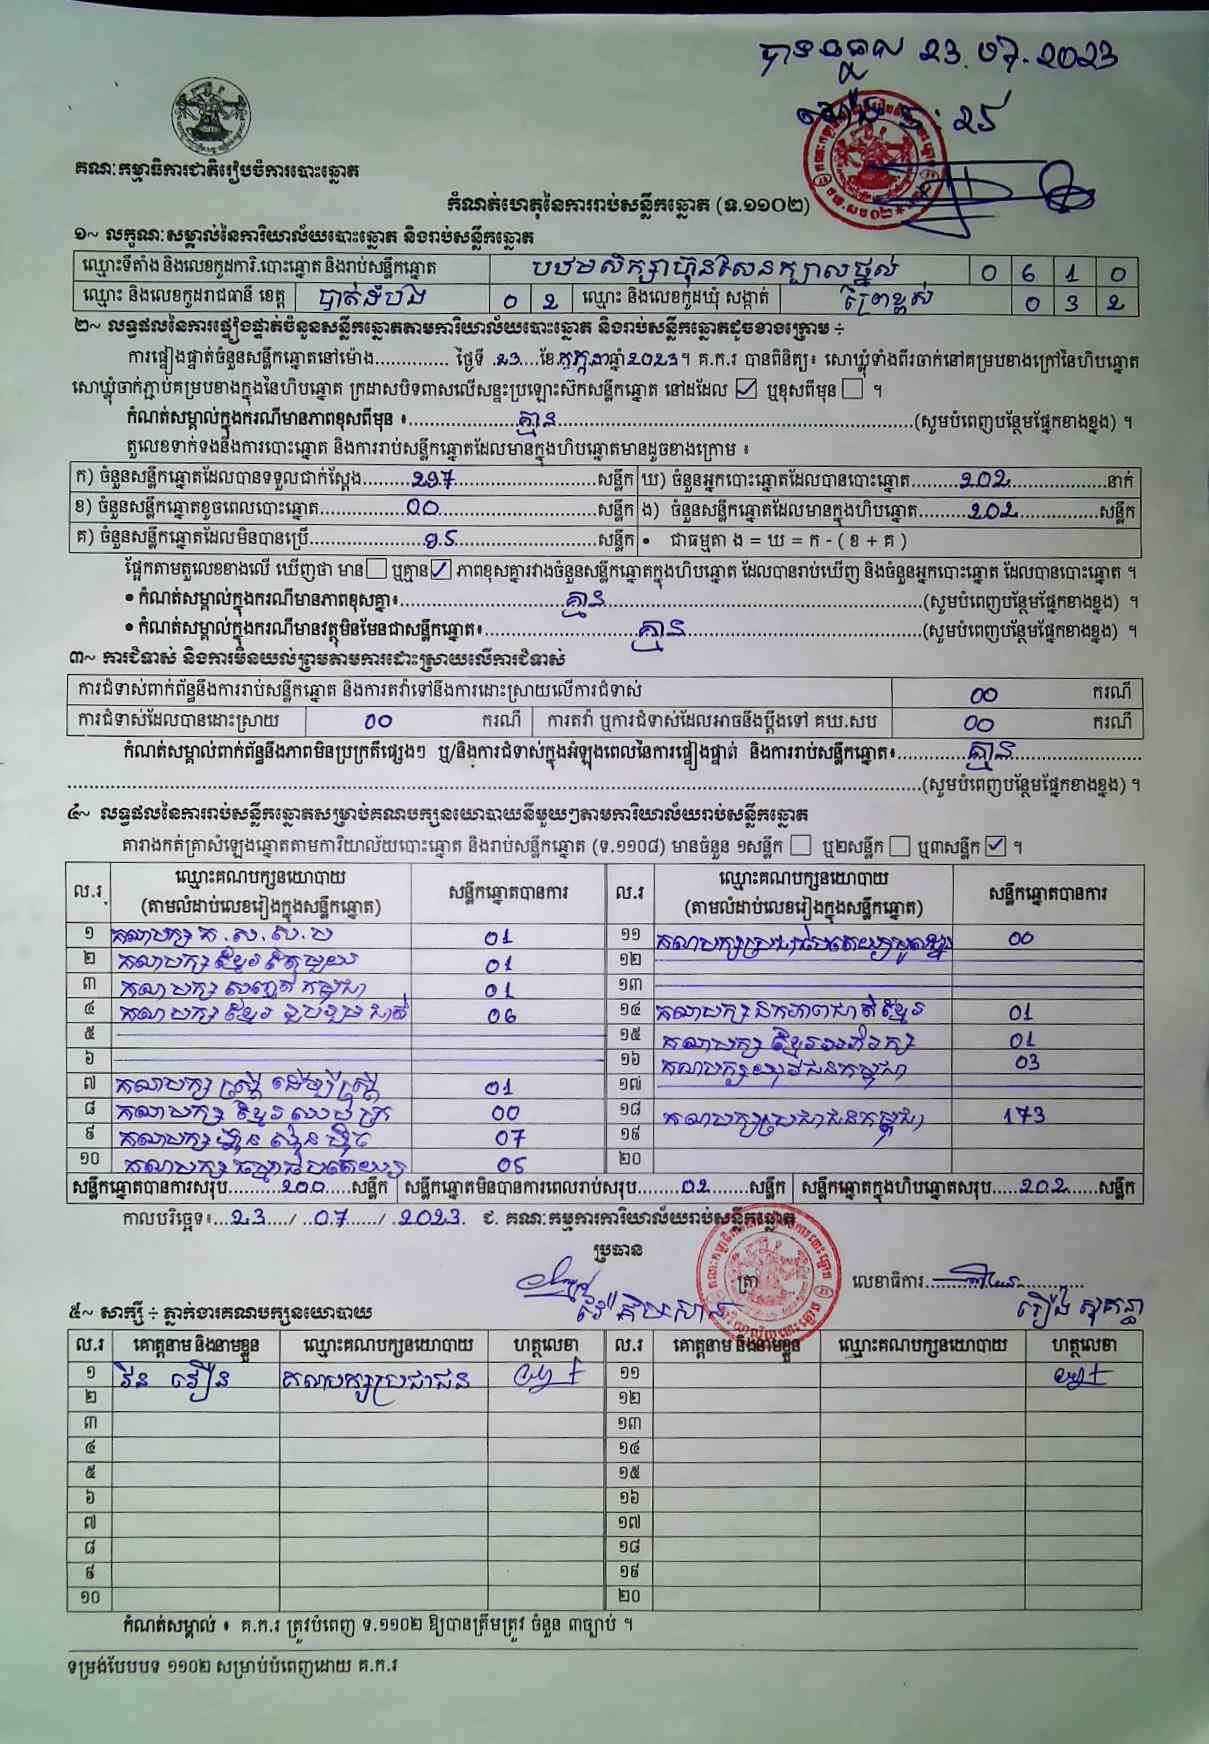 បានទទួល 23.07.2023
ម៉ោង 
គណៈកម្មាធិការជាតិរៀបចំការបោះឆ្នោត
កំណត់ហេតុនៃការរាប់សន្លឹកឆ្នោត (ទ.១១០២)
១~ លក្ខណៈសម្គាល់នៃការិយាល័យបោះឆ្នោត និងរាប់សន្លឹកឆ្នោត
ឈ្មោះទីតាំង និងលេខកូដការិ.បោះឆ្នោត និងរាប់សន្លឹកឆ្នោត បឋមសិក្សាហ៊ុនសែនក្បាលថ្នល់ 0 6 1 0
ឈ្មោះ និងលេខកូដរាជធានី ខេត្ត បាត់ដំបង 0 2 ឈ្មោះ និងលេខកូដឃុំ សង្កាត់ ព្រៃខ្ពស់ 0 3 2
២~ លទ្ធផលនៃការផ្ទៀងផ្ទាត់ចំនួនសន្លឹកឆ្នោតតាមការិយាល័យបោះឆ្នោត និងរាប់សន្លឹកឆ្នោតដូចខាងក្រោម ÷
ការផ្ទៀងផ្ទាត់ចំនួនសន្លឹកឆ្នោតនៅម៉ោង.............. ថ្ងៃទី .23....ខែ.កក្កដាឆ្នាំ2023។ គ.ក.រ បានពិនិត្យ៖ សោឃ្លុំទាំងពីរចាក់នៅគម្របខាងក្រៅនៃហិបឆ្នោត
សោឃ្លុំចាក់ភ្ជាប់គម្របខាងក្នុងនៃហិបឆ្នោត ក្រដាសបិទពាសលើសន្ទះប្រឡោះស៊កសន្លឹកឆ្នោត នៅដដែល ☑ ឬខុសពីមុន ☐ ។
កំណត់សម្គាល់ក្នុងករណីមានភាពខុសពីមុន ៖......................គ្មាន......................(សូមបំពេញបន្ថែមផ្នែកខាងខ្នង) ។
តួលេខទាក់ទងនឹងការបោះឆ្នោត និងការរាប់សន្លឹកឆ្នោតដែលមានក្នុងហិបឆ្នោតមានដូចខាងក្រោម ៖
ក) ចំនួនសន្លឹកឆ្នោតដែលបានទទួលជាក់ស្តែង.........297......................សន្លឹក ឃ) ចំនួនអ្នកបោះឆ្នោតដែលបានបោះឆ្នោត.........202......................នាក់
ខ) ចំនួនសន្លឹកឆ្នោតខូចពេលបោះឆ្នោត...............00......................សន្លឹក ង) ចំនួនសន្លឹកឆ្នោតដែលមានក្នុងហិបឆ្នោត.........202.............សន្លឹក
គ) ចំនួនសន្លឹកឆ្នោតដែលមិនបានប្រើ....................95......................សន្លឹក • ជាធម្មតា ង = ឃ = ក - ( ខ + គ )
ផ្អែកតាមតួលេខខាងលើ ឃើញថា មាន☐ ឬគ្មាន☑ ភាពខុសគ្នារវាងចំនួនសន្លឹកឆ្នោតក្នុងហិបឆ្នោត ដែលបានរាប់ឃើញ និងចំនួនអ្នកបោះឆ្នោត ដែលបានបោះឆ្នោត ។
• កំណត់សម្គាល់ក្នុងករណីមានភាពខុសគ្នា៖..............................គ្មាន..............................(សូមបំពេញបន្ថែមផ្នែកខាងខ្នង) ។
• កំណត់សម្គាល់ក្នុងករណីមានវត្ថុមិនមែនជាសន្លឹកឆ្នោត៖..........................គ្មាន..........................(សូមបំពេញបន្ថែមផ្នែកខាងខ្នង) ។
៣~ ការជំទាស់ និងការមិនយល់ព្រមតាមការដោះស្រាយលើការជំទាស់
ការជំទាស់ពាក់ព័ន្ធនឹងការរាប់សន្លឹកឆ្នោត និងការតវ៉ាទៅនឹងការដោះស្រាយលើការជំទាស់ 00 ករណី
ការជំទាស់ដែលបានដោះស្រាយ 00 ករណី ការតវ៉ា ឬការជំទាស់ដែលអាចនឹងប្តឹងទៅ គឃ.សប 00 ករណី
កំណត់សម្គាល់ពាក់ព័ន្ធនឹងភាពមិនប្រក្រតីផ្សេងៗ ឬ/និងការជំទាស់ក្នុងអំឡុងពេលនៃការផ្ទៀងផ្ទាត់ និងការរាប់សន្លឹកឆ្នោត៖............គ្មាន......................
......................(សូមបំពេញបន្ថែមផ្នែកខាងខ្នង) ។
៤~ លទ្ធផលនៃការរាប់សន្លឹកឆ្នោតសម្រាប់គណបក្សនយោបាយនីមួយៗតាមការិយាល័យរាប់សន្លឹកឆ្នោត
តារាងកត់ត្រាសំឡេងឆ្នោតតាមការិយាល័យបោះឆ្នោត និងរាប់សន្លឹកឆ្នោត (ទ.១១០៨) មានចំនួន ១សន្លឹក ☐ ឬ២សន្លឹក ☐ ឬ៣សន្លឹក ☑ ។
ល.រ ឈ្មោះគណបក្សនយោបាយ (តាមលំដាប់លេខរៀងក្នុងសន្លឹកឆ្នោត) សន្លឹកឆ្នោតបានការ ល.រ ឈ្មោះគណបក្សនយោបាយ (តាមលំដាប់លេខរៀងក្នុងសន្លឹកឆ្នោត) សន្លឹកឆ្នោតបានការ
១ គណបក្ស 01 ១១ គណបក្សប្រជាធិបតេយ្យមូលដ្ឋាន 00
២ គណបក្ស ខ្មែរតែមួយ 01 ១២
៣ គណបក្ស សញ្ជាតិកម្ពុជា 01 ១៣
៤ គណបក្ស ខ្មែររួបរួមជាតិ 06 ១៤ គណបក្សឯកភាពជាតិខ្មែរ 01
៥ ១៥ គណបក្ស ខ្មែរអភិរក្ស 01
៦ ១៦ គណបក្សយុវជនកម្ពុជា 03
៧ គណបក្ស ស្ត្រីដើម្បីស្ត្រី 01 ១៧
៨ គណបក្ស ខ្មែរឈប់ក្រ 00 ១៨ គណបក្សប្រជាជនកម្ពុជា 173
៩ គណបក្ស ហ៊្វុនស៊ិនប៉ិច 07 ១៩
១០ គណបក្ស ធម្មាធិបតេយ្យ 05 ២០
សន្លឹកឆ្នោតបានការសរុប..........200.....សន្លឹក សន្លឹកឆ្នោតមិនបានការពេលរាប់សរុប........02.......សន្លឹក សន្លឹកឆ្នោតក្នុងហិបឆ្នោតសរុប.....202......សន្លឹក
កាលបរិច្ឆេទ៖...23..../...07....../..2023. ជ. គណៈកម្មការការិយាល័យរាប់សន្លឹកឆ្នោត
ប្រធាន
ត្រា លេខាធិការ
រឿង សុគន្ធា
៥~ សាក្សី ÷ ភ្នាក់ងារគណបក្សនយោបាយ
ល.រ គោត្តនាម និងនាមខ្លួន ឈ្មោះគណបក្សនយោបាយ ហត្ថលេខា ល.រ គោត្តនាម និងនាមខ្លួន ឈ្មោះគណបក្សនយោបាយ ហត្ថលេខា
១ វឿន គណបក្សប្រជាជន ១១
២ ១២
៣ ១៣
៤ ១៤
៥ ១៥
៦ ១៦
៧ ១៧
៨ ១៨
៩ ១៩
១០ ២០
កំណត់សម្គាល់ ៖ គ.ក.រ ត្រូវបំពេញ ទ.១១០២ ឱ្យបានត្រឹមត្រូវ ចំនួន ៣ច្បាប់ ។
ទម្រង់បែបបទ ១១០២ សម្រាប់បំពេញដោយ គ.ក.រ